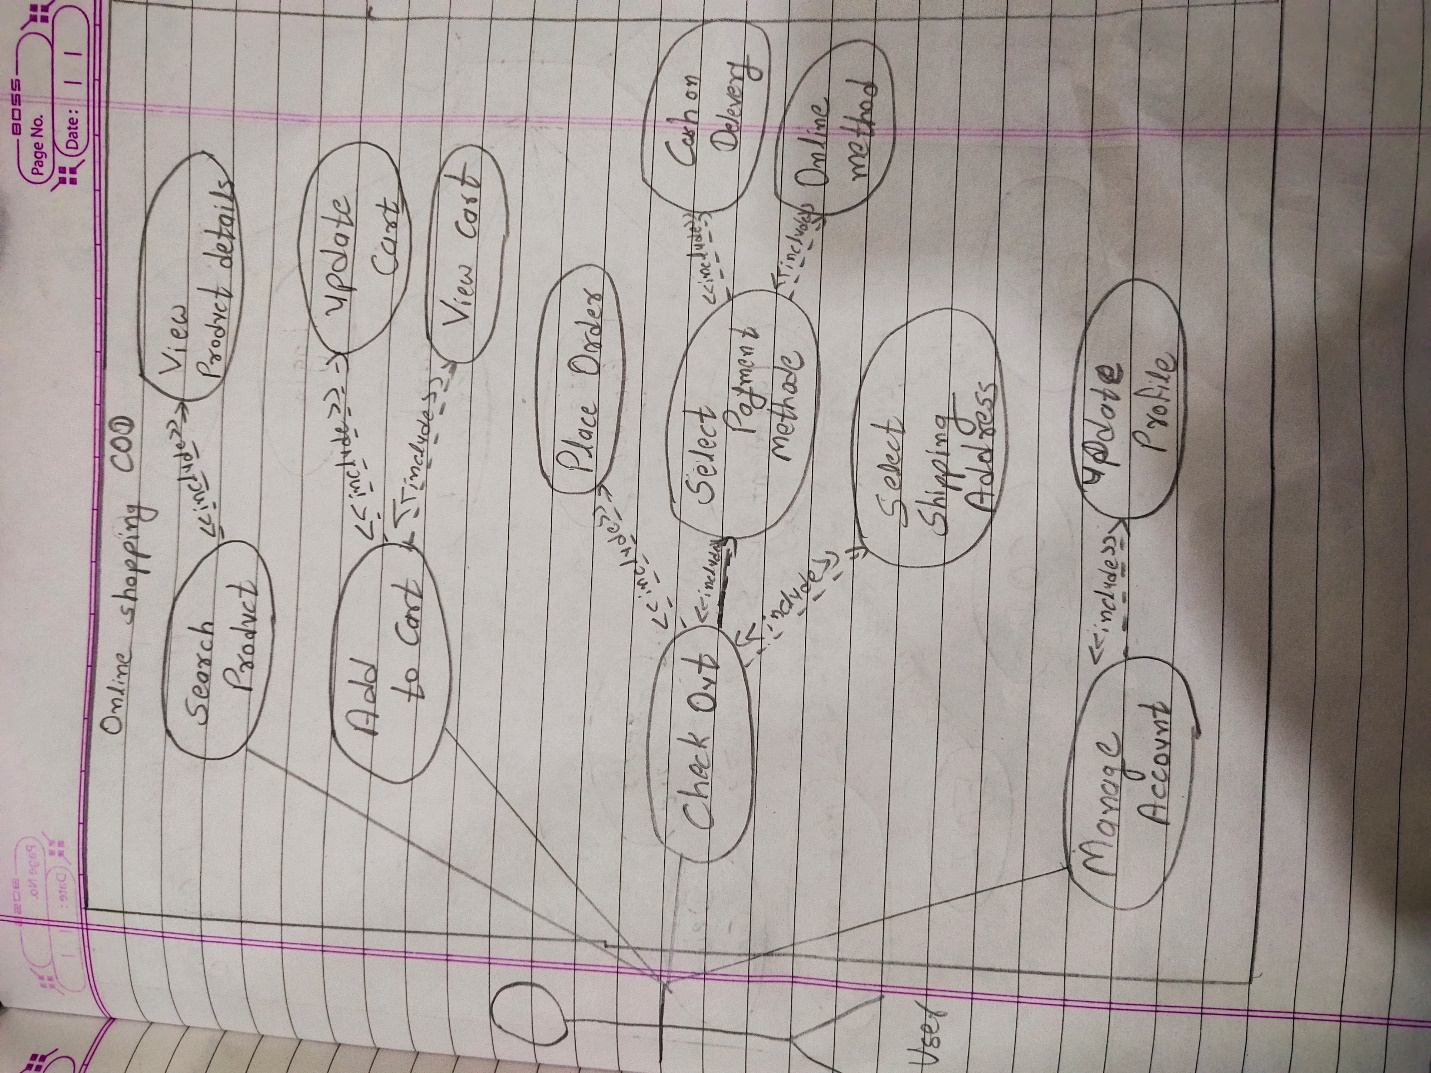 BOSS
Page No.
Date:
Online shopping COD
Search
Product
<<include>>
View
Product details
Add
to Cart
<<include>>
Update
Cart
<<include>>
View Cart
Check Out
<<include>>
Place Order
<<include>>
Select
Payment
Methode
<<include>>
Cash on
Delevery
<<include>>
Online
method
<<include>>
Select
Shipping
Address
Manage
Account
<<include>>
Update
Profile
User